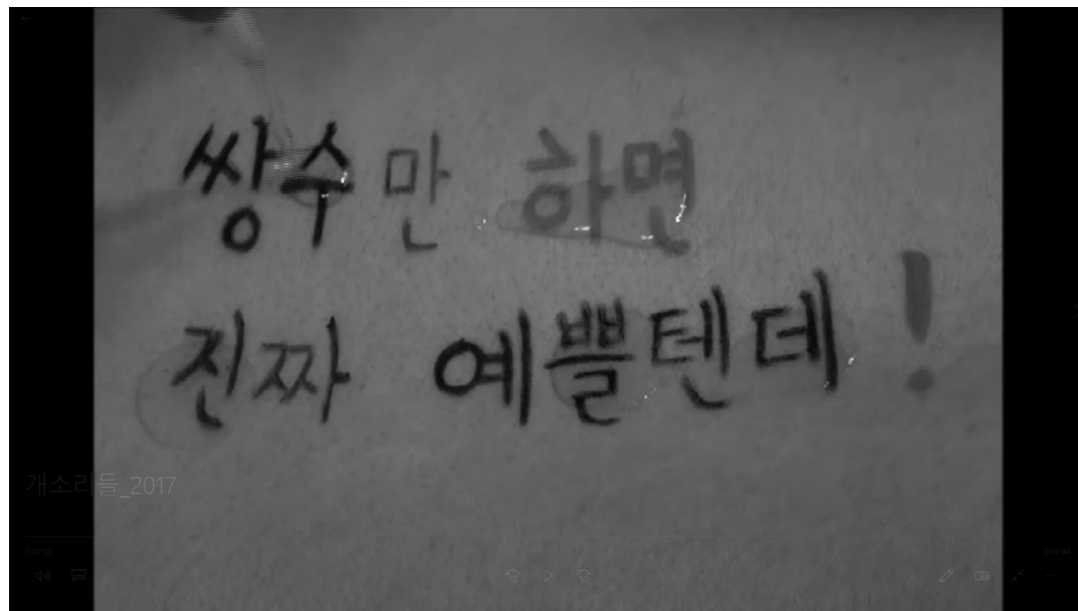 쌍수만 하면
진짜 예쁠텐데!
개소리들_2017